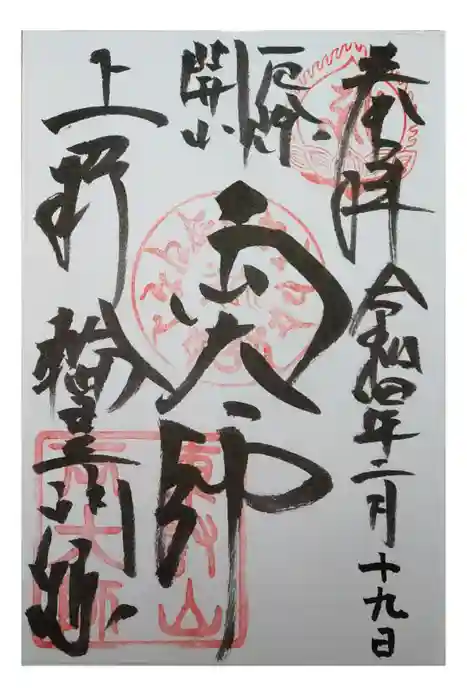 奉拝
令和四年二月十九日
厄除
開山
両大師
上野
輪王寺門跡
東叡山
両大師